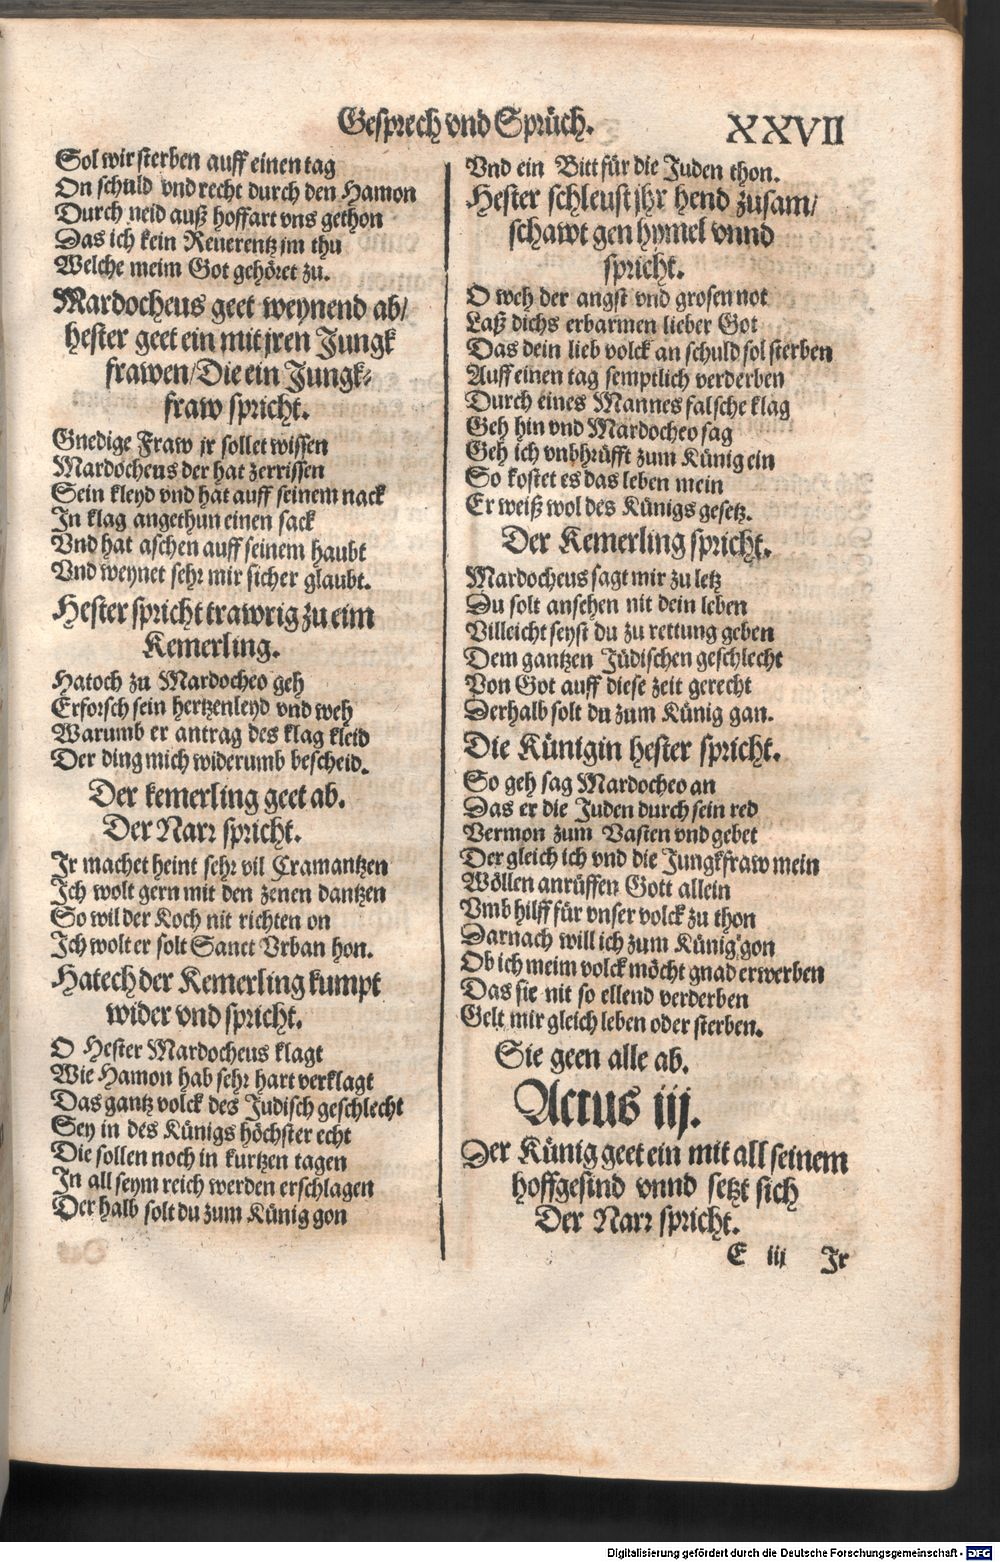 Gesprech vnd Sprüch.
XXVII
Sol wir sterben auff einen tag
On schuld vnd recht durch den Hamon
Durch neid auß hoffart vns gethon
Das ich kein Reuerentz jm thu
Welche meim Got gehöret zu.
Mardocheus geet weynend ab/
hester geet ein mit jren Jungk
frawen/Die ein Jungk-
fraw spricht.
Gnedige Fraw jr sollet wissen
Mardocheus der hat zerrissen
Sein kleyd vnd hat auff seinem nack
In klag angethun einen sack
Vnd hat aschen auff seinem haubt
Vnd weynet sehr mir sicher glaubt.
Hester spricht trawrig zu eim
Kemerling.
Hatoch zu Mardocheo geh
Erforsch sein hertzenleyd vnd weh
Warumb er antrag des klag kleid
Der ding mich widerumb bescheid.
Der kemerling geet ab.
Der Narr spricht.
Jr machet heint sehr vil Cramantzen
Ich wolt gern mit den zenen dantzen
So wil der Koch nit richten on
Ich wolt er solt Sanct Vrban hon.
Hatech der Kemerling kumpt
wider vnd spricht.
O Hester Mardocheus klagt
Wie Hamon hab sehr hart verklagt
Das gantz volck des Judisch geschlecht
Sey in des Künigs höchster echt
Die sollen noch in kurtzen tagen
In all seym reich werden erschlagen
Der halb solt du zum Künig gon
Vnd ein Bitt für die Juden thon.
Hester schleust jhr hend zusam/
schawt gen hymel vnnd
spricht.
O weh der angst vnd grosen not
Laß dichs erbarmen lieber Got
Das dein lieb volck an schuld sol sterben
Auff einen tag semptlich verderben
Durch eines Mannes falsche klag
Geh hin vnd Mardocheo sag
Geh ich vnbhrüfft zum Künig ein
So kostet es das leben mein
Er weiß wol des Künigs gesetz.
Der Kemerling spricht.
Mardocheus sagt mir zu letz
Du solt ansehen nit dein leben
Villeicht seyst du zu rettung geben
Dem gantzen Jüdischen geschlecht
Von Got auff diese zeit gerecht
Derhalb solt du zum Künig gan.
Die Künigin hester spricht.
So geh sag Mardocheo an
Das er die Juden durch sein red
Vermon zum Vasten vnd gebet
Der gleich ich vnd die Jungkfraw mein
Wöllen anrüffen Gott allein
Vmb hilff für vnser volck zu thon
Darnach will ich zum Künig gon
Ob ich meim volck möcht gnad erwerben
Das sie nit so ellend verderben
Gelt mir gleich leben oder sterben.
Sie geen alle ab.
Actus iij.
Der Künig geet ein mit all seinem
hoffgesind vnnd setzt sich
Der Narr spricht.
E iij Jr
Digitalisierung gefördert durch die Deutsche Forschungsgemeinschaft - DFG